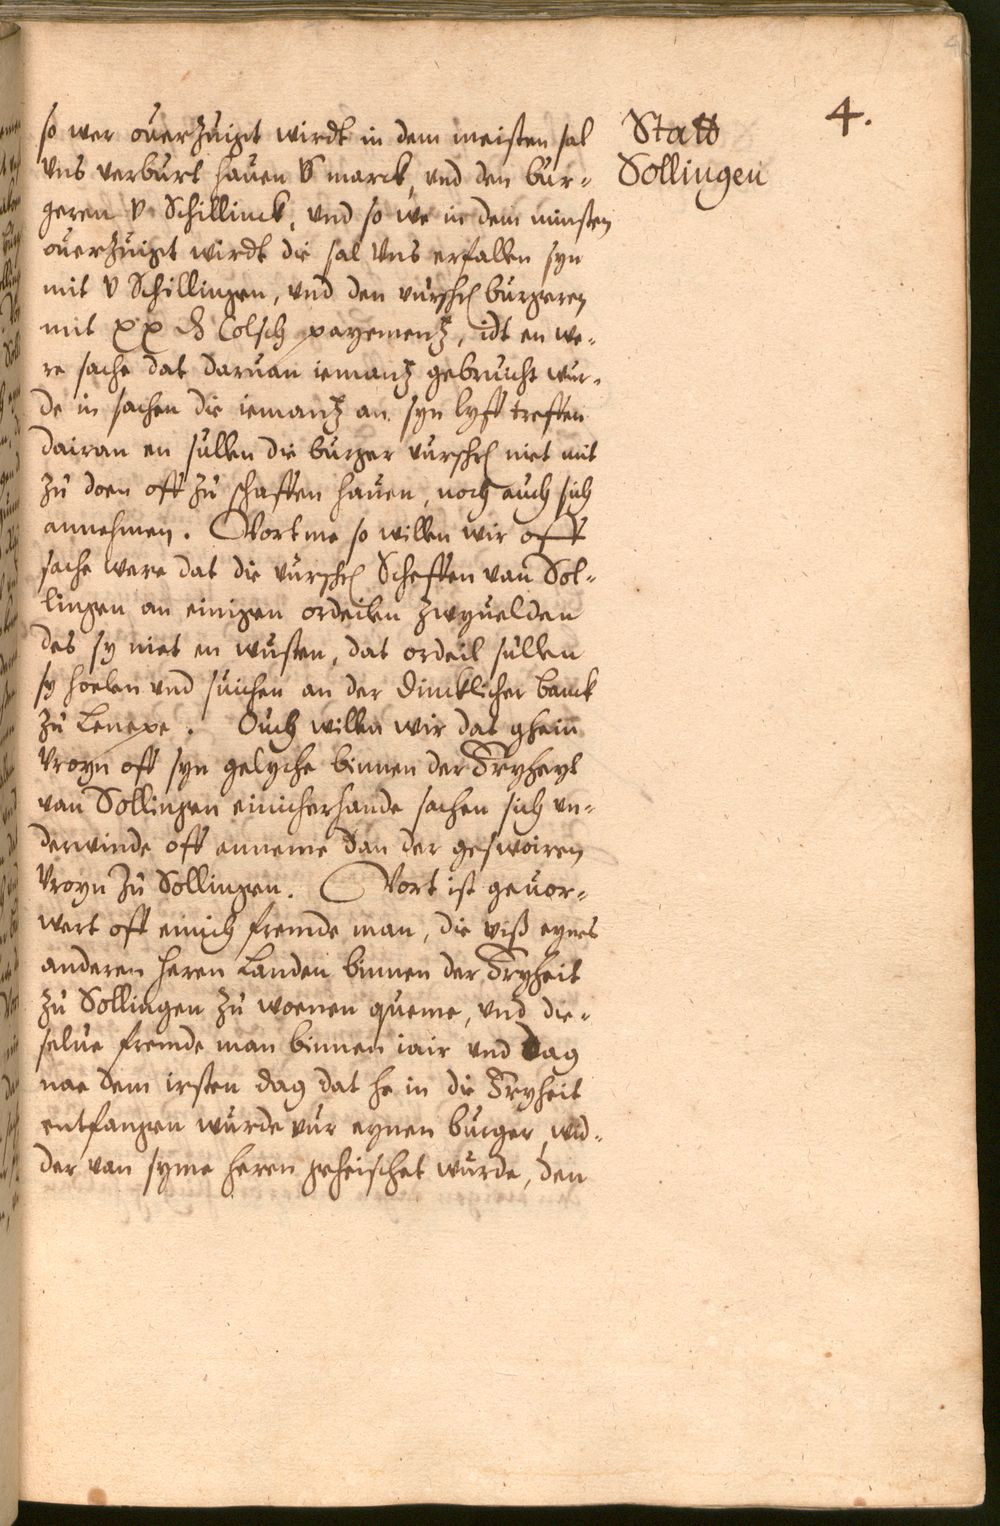 4.
Statt
Sollingen
so wer ouerzuigt wirdt in dem meisten sal
vns verburt hauen V marck, vnd den bur-
geren V Schillinck, vnd so we in dem minsten
ouerzuigt wirdt die sal vns erfallen syn
mit V Schillingen, vnd den vurschr burgeren
mit XX d Colsch payementz, idt en we-
re sache dat daruan iemantz gebruicht wur-
de in sachen die iemantz an syn lyff treffen
dairan en sullen die burger vurschr niet mit
zu doen off zu schaffen hauen, noch auch sich
annehmen. Vortme so willen wir off
sache were dat die vurschr Scheffen van Sol-
lingen an einigen ordeilen zwyuelden
des sy niet en wusten, dat ordeil sullen
sy hoelen vnd suichen an der Dincklicher banck
zu Lenepe. Ouch willen wir dat ghein
Vroyn off syn gelyche binnen der Fryheyt
van Sollingen einicherhande sachen sich vn-
derwinde off anneme dan der geswoiren
Vroyn zu Sollingen. Vort ist geuor-
wert off einich fremde man, die viß eynes
anderen heren Landen binnen der Fryheit
zu Sollingen zu woenen queme, vnd die-
selue fremde man binnen iair vnd Dag
nae dem irsten dag dat he in die Fryheit
entfangen wurde vur eynen burger, wid-
der van syme heren geheischet wurde, den